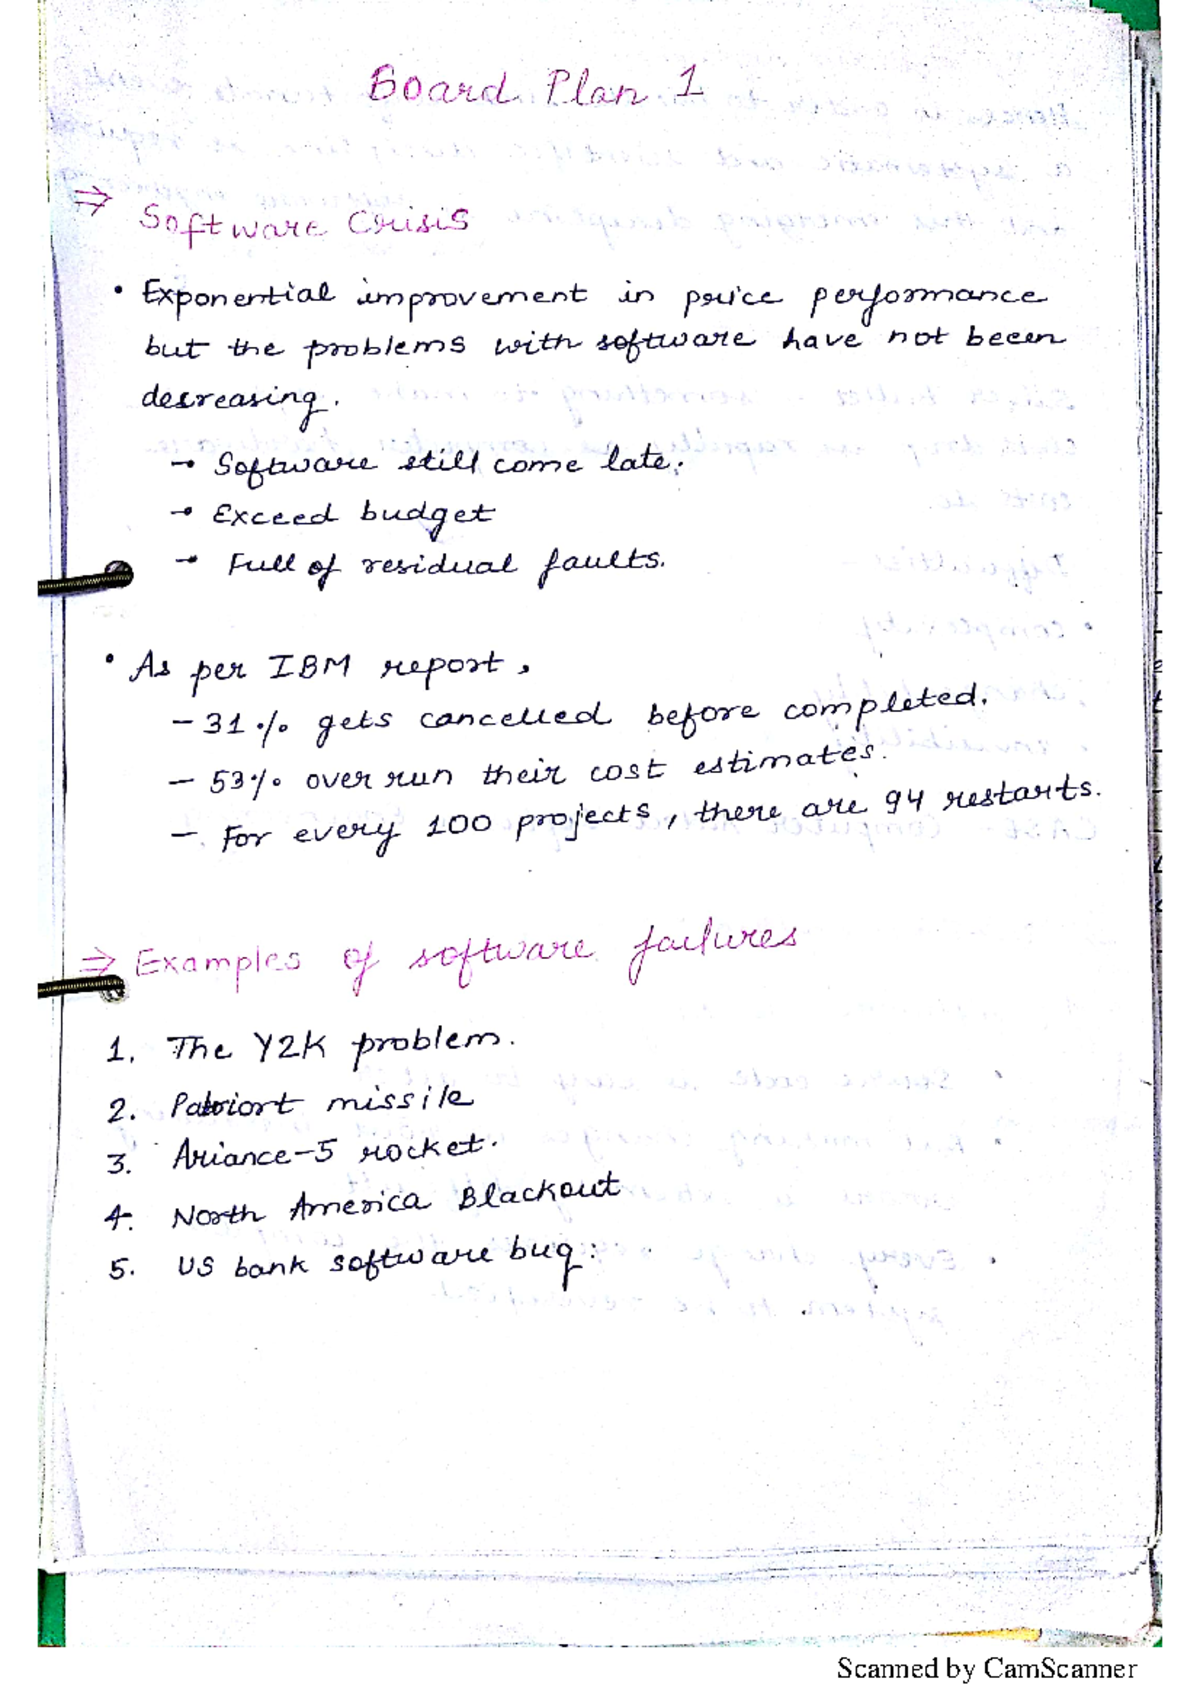 Board Plan 1
⇒ Software Crisis
• Exponential improvement in price performance
but the problems with software have not beeen
decreasing.
→ Software still come late.
→ Exceed budget
→ Full of residual faults.
• As per IBM report,
– 31% gets cancelled before completed.
– 53% over run their cost estimates.
– For every 100 projects, there are 94 restarts.
⇒ Examples of software failures
1. The Y2K problem.
2. Patriort missile
3. Ariance-5 rocket.
4. North America Blackout
5. US bank software bug.
Scanned by CamScanner